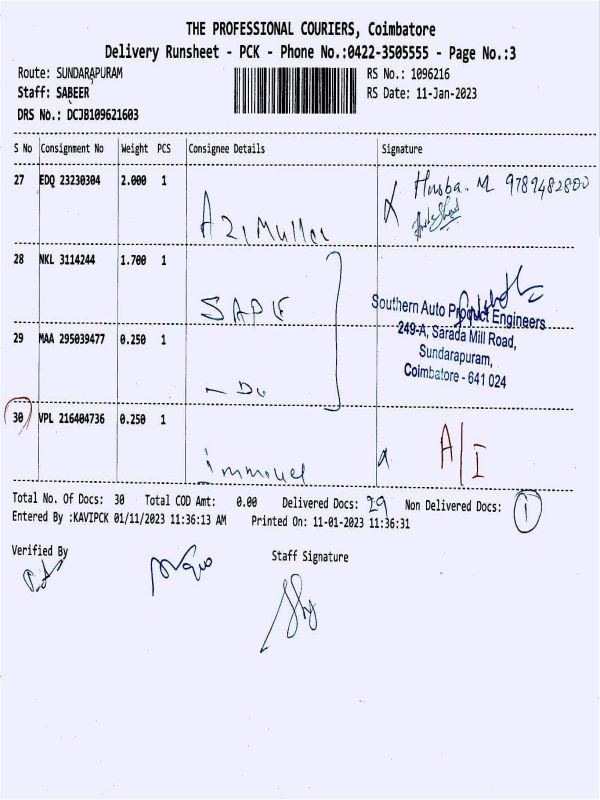 THE PROFESSIONAL COURIERS, Coimbatore
Delivery Runsheet - PCK - Phone No.:0422-3505555 - Page No.:3
Route: SUNDARAPURAM
RS No.: 1096216
Staff: SABEER
RS Date: 11-Jan-2023
DRS No.: DCJB109621603
S No Consignment No Weight PCS Consignee Details Signature
27 EDQ 23230304 2.000 1
M 9789482800
28 NKL 3114244 1.700 1
Southern Auto Product Engineers
249-A, Sarada Mill Road,
Sundarapuram,
Coimbatore - 641 024
29 MAA 295039477 0.250 1
30 VPL 216404736 0.250 1
A/I
Total No. Of Docs: 30 Total COD Amt: 0.00 Delivered Docs: 29 Non Delivered Docs: 1
Entered By :KAVIPCK 01/11/2023 11:36:13 AM Printed On: 11-01-2023 11:36:31
Verified By
Staff Signature